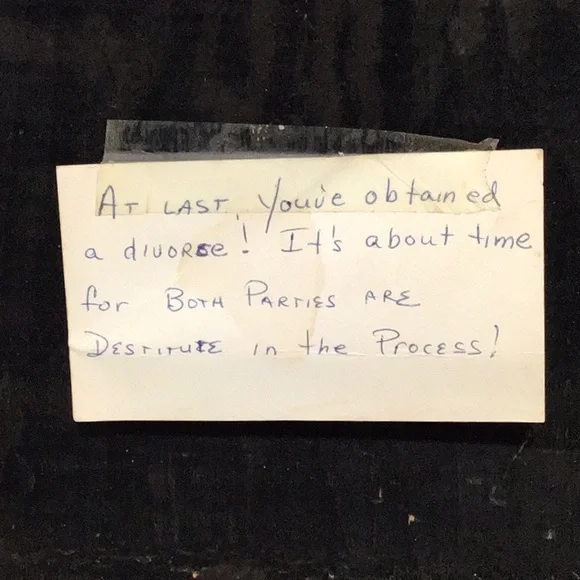 At last, you've obtained
a divorce! It's about time
for Both Parties are
Destitute in the Process!